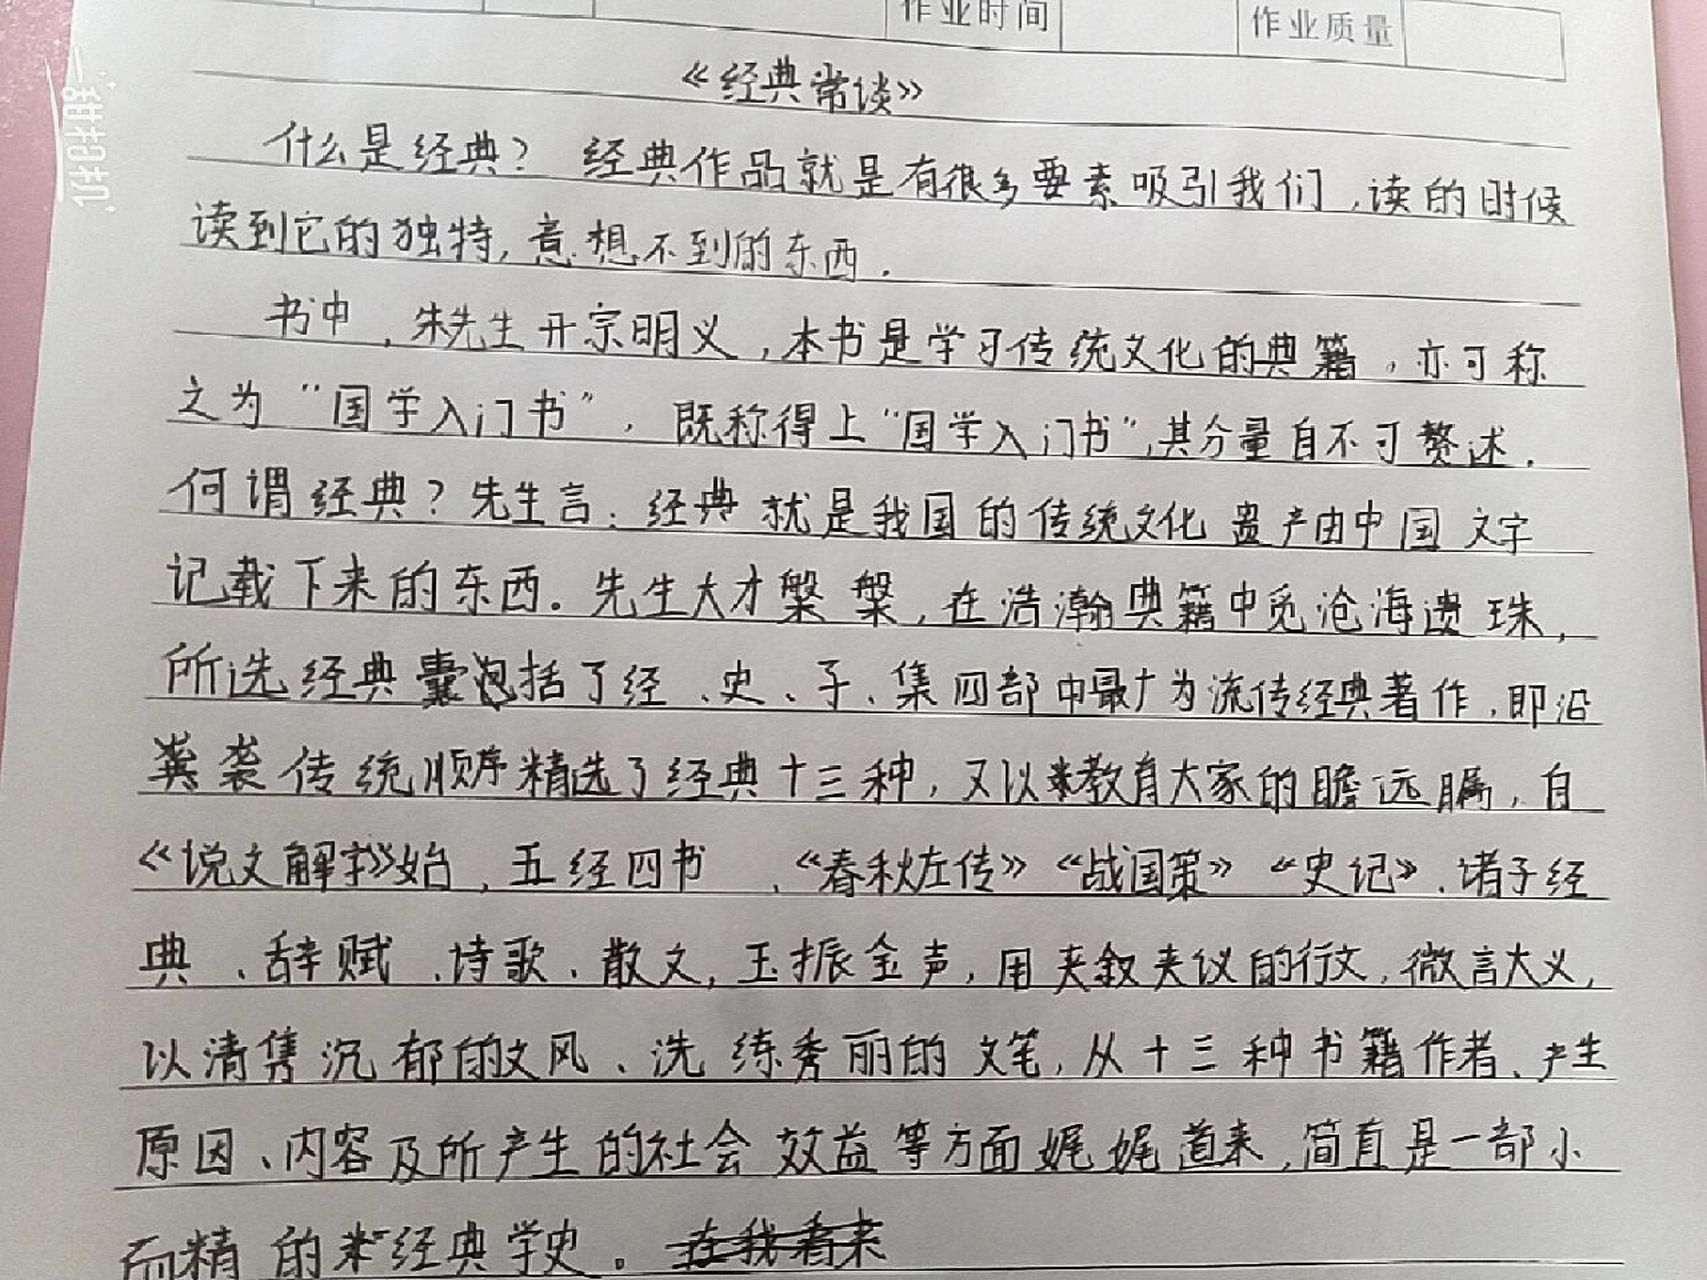 作业时间 作业质量
一甜相机
《经典常谈》
什么是经典？经典作品就是有很多要素吸引我们，读的时候
读到它的独特，意想不到的东西．
书中，朱先生开宗明义，本书是学习传统文化的典籍，亦可称
之为“国学入门书”，既称得上“国学入门书”，其分量自不可赘述．
何谓经典？先生言：经典就是我国的传统文化遗产由中国文字
记载下来的东西。先生大才槃槃，在浩瀚典籍中觅沧海遗珠，
所选经典囊包括了经、史、子、集四部中最广为流传经典著作，即沿
袭传统顺序精选了经典十三种，又以教育大家的瞻远瞩，自
《说文解字》始，五经四书、《春秋左传》《战国策》《史记》、诸子经
典、辞赋、诗歌、散文，玉振金声，用夹叙夹议的行文，微言大义，
以清隽沉郁的文风、洗练秀丽的文笔，从十三种书籍作者、产生
原因、内容及所产生的社会效益等方面娓娓道来，简直是一部小
而精的经典学史。在我看来